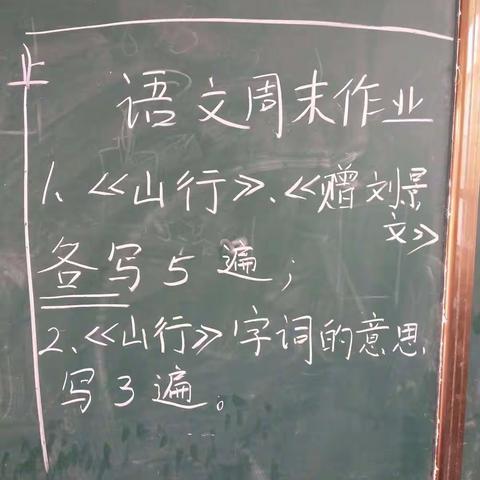 语文周末作业
1、《山行》、《赠刘景
文》
各写5遍；
2、《山行》字词的意思
写3遍。